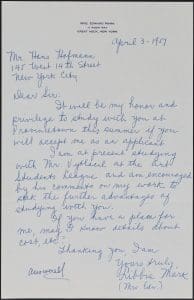 MRS. EDWARD MARK
GREAT NECK, NEW YORK
April 3 - 1957
Mr. Hans Hofmann
145 West 14th Street
New York City
Dear Sir:
It will be my honor and
privilege to study with you at
Provincetown this summer if you
will accept me as an applicant
I am at present studying
with Mr. Vytlacil at the
Students League and am encouraged
by his comments on my work to
seek the further advantages of
studying with you.
If you have a place for
me, may I know details about
cost, etc?
Thanking you I am
Yours truly,
Libbie Mark
(Mrs. Edw.)
answered